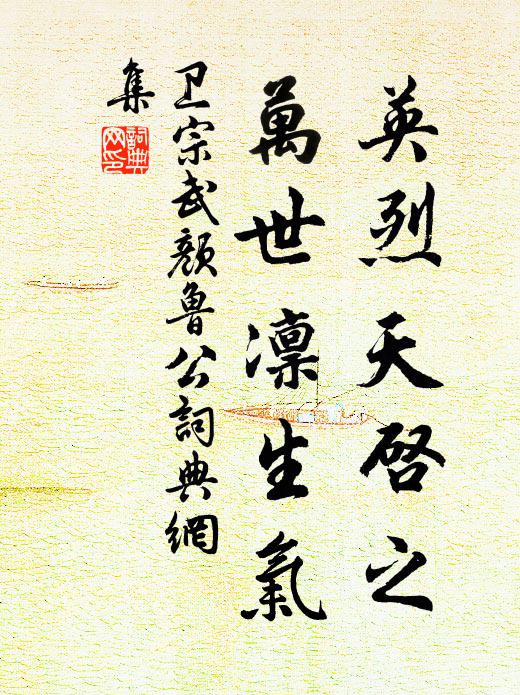 英烈天啓之
萬世凛生氣
卫宗武顏魯公詞典網
集
詞典網印